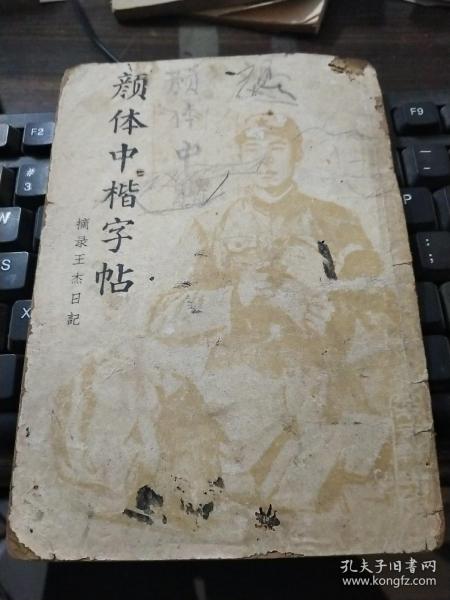 颜体中楷字帖
摘录王杰日記
颜体中
F2
F9
#
3
W
S
X
孔夫子旧书网
www.kongfz.com